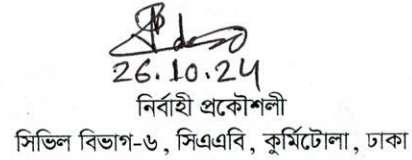 26.10.24
নির্বাহী প্রকৌশলী
সিভিল বিভাগ-৬, সিএএবি, কুর্মিটোলা, ঢাকা